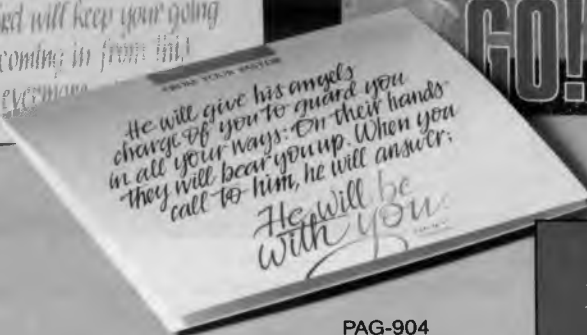 will keep your going
coming in from this
GO!
FROM YOUR PASTOR
He will give his angels
charge of you to guard you
in all your ways: On their hands
they will bear you up. When you
call to him, he will answer;
He will be
with you.
PAG-904